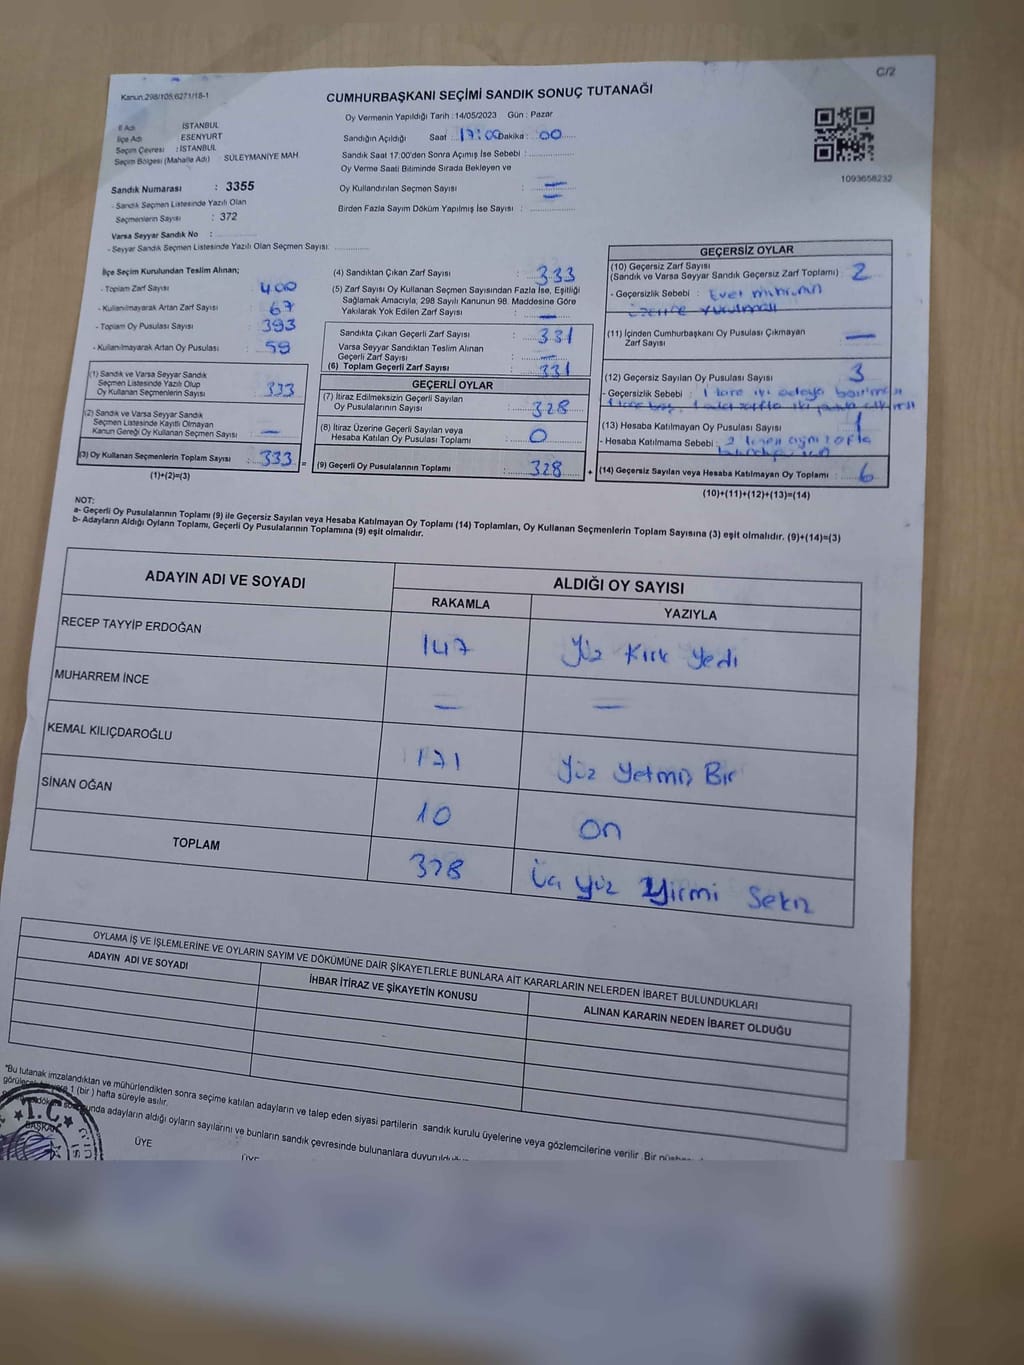 C/2
Kanun.298/105,6271/18-1
CUMHURBAŞKANI SEÇİMİ SANDIK SONUÇ TUTANAĞI
Oy Vermenin Yapıldığı Tarih : 14/05/2023 Gün : Pazar
İl Adı İSTANBUL
İlçe Adı ESENYURT
Seçim Çevresi : İSTANBUL
Seçim Bölgesi (Mahalle Adı) SÜLEYMANİYE MAH
Sandığın Açıldığı Saat : 17:00 Dakika : 00
Sandık Saat 17:00'den Sonra Açımış İse Sebebi :
Oy Verme Saati Bitiminde Sırada Bekleyen ve
Oy Kullandırılan Seçmen Sayısı : —
Birden Fazla Sayım Döküm Yapılmış İse Sayısı : —
1093658232
Sandık Numarası : 3355
- Sandık Seçmen Listesinde Yazılı Olan
Seçmenlerin Sayısı : 372
Varsa Seyyar Sandık No :
- Seyyar Sandık Seçmen Listesinde Yazılı Olan Seçmen Sayısı:
İlçe Seçim Kurulundan Teslim Alınan;
- Toplam Zarf Sayısı : 400
- Kullanılmayarak Artan Zarf Sayısı : 67
- Toplam Oy Pusulası Sayısı : 393
- Kullanılmayarak Artan Oy Pusulası : 59
(1) Sandık ve Varsa Seyyar Sandık
Seçmen Listesinde Yazılı Olup
Oy Kullanan Seçmenlerin Sayısı : 333
(2) Sandık ve Varsa Seyyar Sandık
Seçmen Listesinde Kayıtlı Olmayan
Kanun Gereği Oy Kullanan Seçmen Sayısı : —
(3) Oy Kullanan Seçmenlerin Toplam Sayısı : 333 =
(1)+(2)=(3)
(4) Sandıktan Çıkan Zarf Sayısı : 333
(5) Zarf Sayısı Oy Kullanan Seçmen Sayısından Fazla İse, Eşitliği
Sağlamak Amacıyla; 298 Sayılı Kanunun 98. Maddesine Göre
Yakılarak Yok Edilen Zarf Sayısı : —
Sandıkta Çıkan Geçerli Zarf Sayısı : 331
Varsa Seyyar Sandıktan Teslim Alınan
Geçerli Zarf Sayısı : —
(6) Toplam Geçerli Zarf Sayısı : 331
GEÇERLİ OYLAR
(7) İtiraz Edilmeksizin Geçerli Sayılan
Oy Pusulalarının Sayısı : 328
(8) İtiraz Üzerine Geçerli Sayılan veya
Hesaba Katılan Oy Pusulası Toplamı : 0
(9) Geçerli Oy Pusulalarının Toplamı : 328 +
GEÇERSİZ OYLAR
(10) Geçersiz Zarf Sayısı
(Sandık ve Varsa Seyyar Sandık Geçersiz Zarf Toplamı) : 2
- Geçersizlik Sebebi : Evet mührünün
üzerine vurulması
(11) İçinden Cumhurbaşkanı Oy Pusulası Çıkmayan
Zarf Sayısı —
(12) Geçersiz Sayılan Oy Pusulası Sayısı : 3
- Geçersizlik Sebebi : 1 tane iki adaya
(13) Hesaba Katılmayan Oy Pusulası Sayısı : 1
- Hesaba Katılmama Sebebi : 2
(14) Geçersiz Sayılan veya Hesaba Katılmayan Oy Toplamı : 6
(10)+(11)+(12)+(13)=(14)
NOT:
a- Geçerli Oy Pusulalarının Toplamı (9) ile Geçersiz Sayılan veya Hesaba Katılmayan Oy Toplamı (14) Toplamları, Oy Kullanan Seçmenlerin Toplam Sayısına (3) eşit olmalıdır. (9)+(14)=(3)
b- Adayların Aldığı Oyların Toplamı, Geçerli Oy Pusulalarının Toplamına (9) eşit olmalıdır.
ADAYIN ADI VE SOYADI ALDIĞI OY SAYISI
RAKAMLA YAZIYLA
RECEP TAYYİP ERDOĞAN 147 Yüz Kırk Yedi
MUHARREM İNCE — —
KEMAL KILIÇDAROĞLU 171 Yüz Yetmiş Bir
SİNAN OĞAN 10 On
TOPLAM 328 Üç Yüz Yirmi Sekiz
OYLAMA İŞ VE İŞLEMLERİNE VE OYLARIN SAYIM VE DÖKÜMÜNE DAİR ŞİKAYETLERLE BUNLARA AİT KARARLARIN NELERDEN İBARET BULUNDUKLARI
ADAYIN ADI VE SOYADI İHBAR İTİRAZ VE ŞİKAYETİN KONUSU ALINAN KARARIN NEDEN İBARET OLDUĞU
*Bu tutanak imzalandıktan ve mühürlendikten sonra seçime katılan adayların ve talep eden siyasi partilerin sandık kurulu üyelerine veya gözlemcilerine verilir. Bir
1 (bir) hafta süreyle asılır.
adayların aldığı oyların sayılarını ve bunların sandık çevresinde bulunanlara
T.C.
BAŞKAN
ÜYE
ÜYE